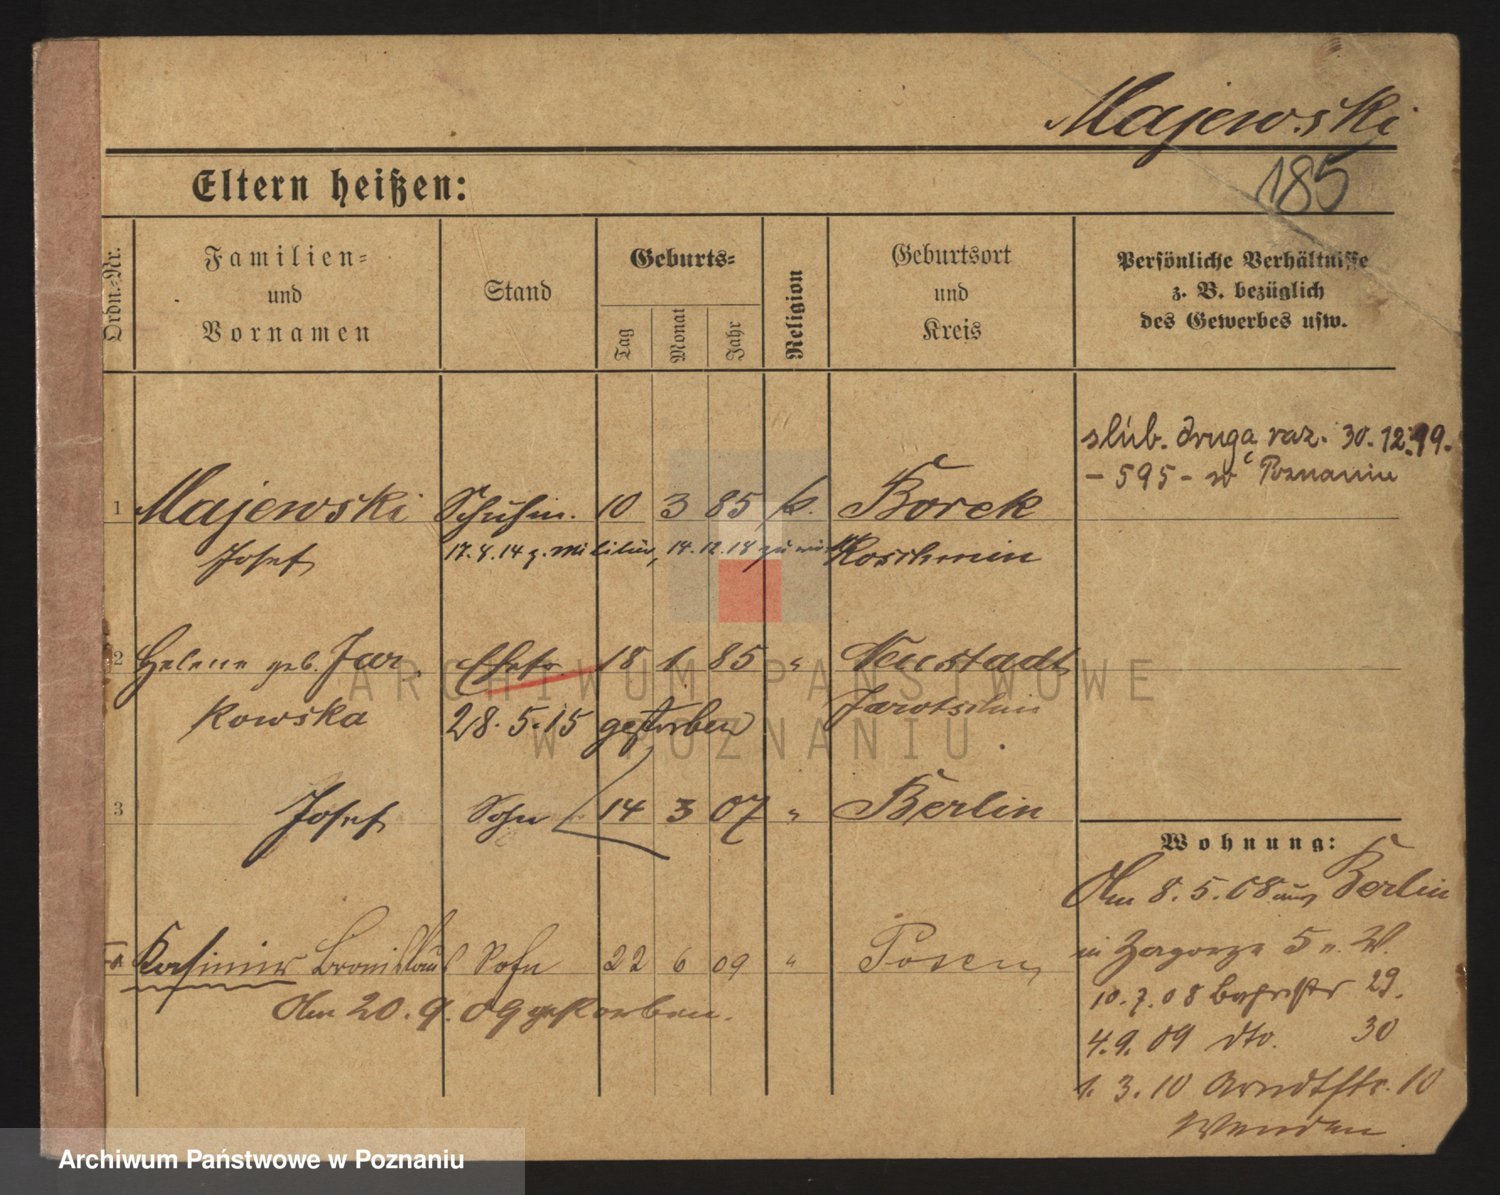 Majewski
185
Eltern heißen:
Ordn.-Nr.
Familien-
und
Vornamen
Stand
Geburts-
Tag
Monat
Jahr
Religion
Geburtsort
und
Kreis
Persönliche Verhältnisse
z. B. bezüglich
des Gewerbes usw.
ślub. drugą raz. 30.12.19.
- 595 - w Poznaniu
1 Majewski Schuhm. 10 3 85 k. Borek
Josef 17.8.14 z. Militär, 14.12.18 zu Koschmin
2 Helene geb. Jar Ehefr. 18 1 85 " Neustadt
kowska 28.5.15 gestorben Jarotschin
3 Josef Sohn 14 3 07 " Berlin
Wohnung:
Am 8.5.08 aus Berlin
Kasimir Bronislaus Sohn 22 6 09 " Posen
in Zagorze 5 n. W.
Am 20.9.09 gestorben.
10.7.08 29.
4.9.09 dto. 30
1.3.10 Arndtstr. 10
Wenden
ARCHIWUM PAŃSTWOWE
W POZNANIU
Archiwum Państwowe w Poznaniu